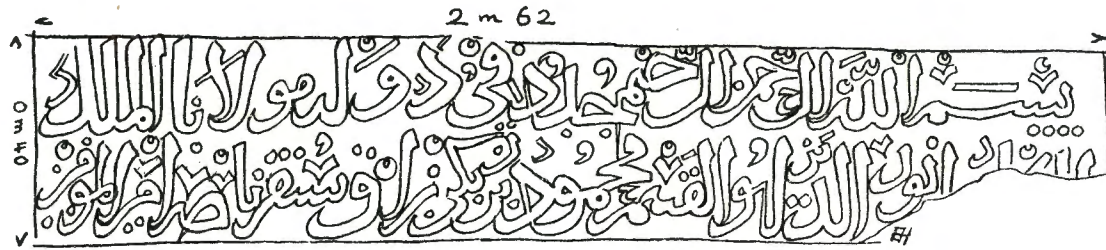 2 m 62
0 m 40
بسم الله الرحمن الرحيم جدد في دولة مولانا الملك
نور الدين ابو القسم محمود بن زنكي بن اقسنقر ناصر امير المومنين
EH